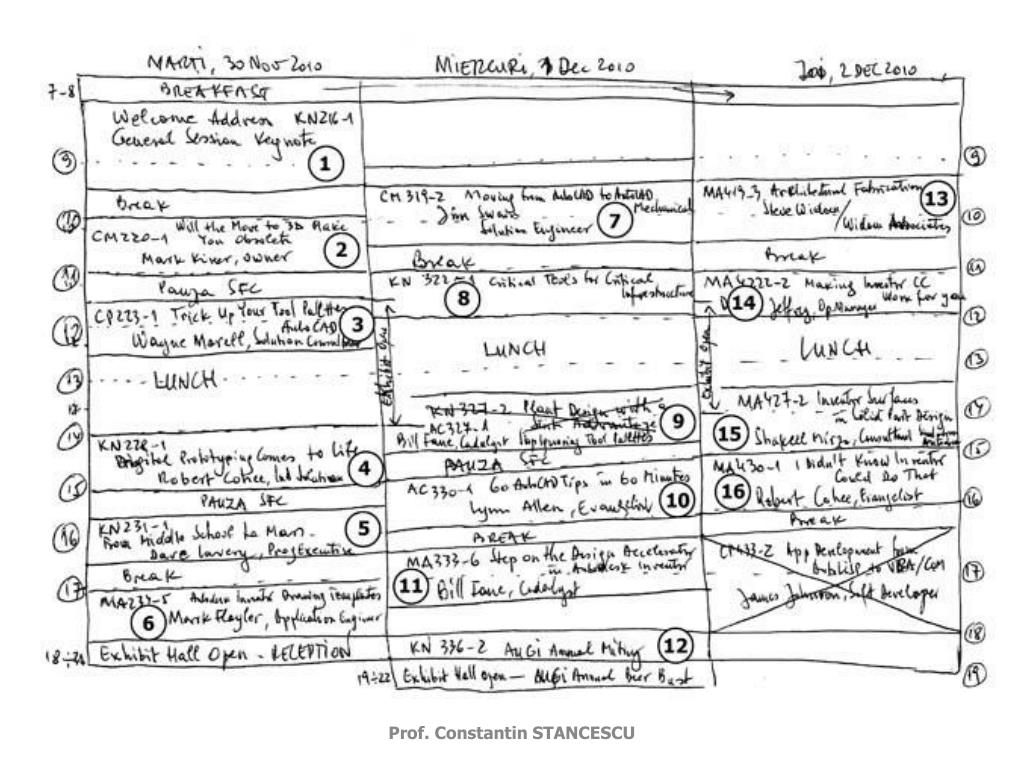 MARTI, 30 NOV 2010
MIERCURI, 1 Dec 2010
Joi, 2 DEC 2010
7-8
BREAKFAST
Welcome Address KN216-1
General Session Keynote
1
9
Break
10
CM220-1 Will the Move to 3D Make
You Obsolete
Mark Kiker, owner
2
11
Pauza SFC
CP223-1 Trick Up Your Tool Palettes
AutoCAD
3
12
Wayne Morell, Solution
LUNCH
13
14
KN228-1
Digital Prototyping Comes to Life
Robert Cohee, Ind Solution
4
15
PAUZA SFC
KN231-1
From Middle School to Mars
Dave Lavery, Prog Executive
5
16
Break
17
MA234-5 Autodesk Inventor Drawing Templates
Mark Flayler, Application Engineer
6
18÷20
Exhibit Hall Open - RECEPTION
CM 319-2 Moving from AutoCAD to AutoCAD
Mechanical
Jim Swain
Solution Engineer
7
Break
KN 322-1 Critical Tools for Critical
Infrastructure
8
Exhibit Open
LUNCH
KN 327-2 Plant Design with a
AC327-1
9
Bill Fane, Cadalyst Tool Palettes
PAUZA SFC
AC330-1 60 AutoCAD Tips in 60 Minutes
Lynn Allen, Evangelist
10
BREAK
MA333-6 Step on the Design Accelerator
in Autodesk Inventor
11
Bill Fane, Cadalyst
KN 336-2 AUGI Annual Miting
12
19÷22
Exhibit Hall open — AUGI Annual Beer Bust
9
MA419-3 Architectural Fabrication
13
Steve Widom
/Widom Associates
10
Break
11
MA4222-2 Making Inventor CC
Work for you
14
Jeffrey, Op Manager
12
Exhibit Open
LUNCH
13
MA427-2 Inventor Surfaces
in Solid Part Design
14
15
Shakeel Mirza, Consultant
15
MA430-1 I Didn't Know Inventor
Could Do That
16
Robert Cohee, Evangelist
16
Break
CP433-2 App Development from
AutoLisp to VBA/COM
17
James Johnson, Soft Developer
18
19
Prof. Constantin STANCESCU